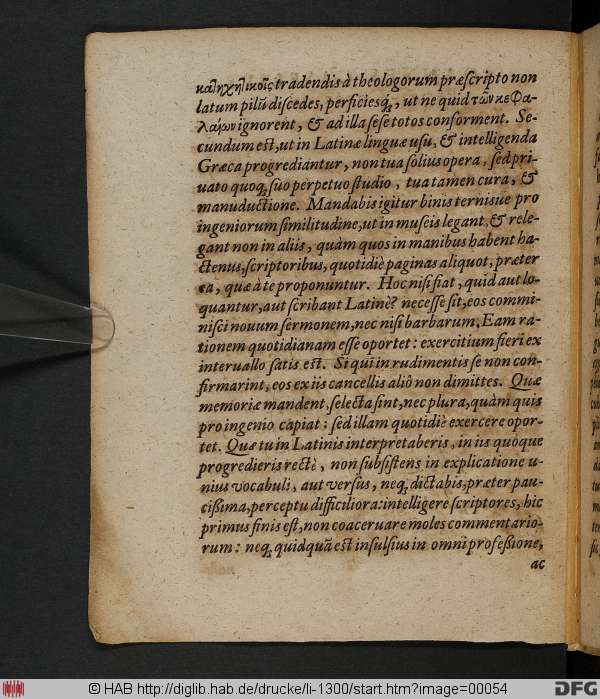 κατηχητικοῖς tradendis à theologorum præſcripto non
latum pilũ diſcedes, perficiesq́;, ut ne quid τῶν κεφα-
λαίων ignorent, & ad illa ſeſe totos conforment. Se-
cundum eſt, ut in Latinæ linguæ uſu, & intelligenda
Græca progrediantur, non tua ſolius opera, ſed pri-
uato quoq; ſuo perpetuo ſtudio, tua tamen cura, &
manuductione. Mandabis igitur binis ternisue pro
ingeniorum ſimilitudine, ut in muſeis legant, & rele-
gant non in aliis, quàm quos in manibus habent ha-
ctenus, ſcriptoribus, quotidiè paginas aliquot, præter
ea, quæ à te proponuntur. Hoc niſi fiat, quid aut lo-
quantur, aut ſcribant Latinè? neceſſe ſit, eos commi-
niſci nouum ſermonem, nec niſi barbarum, Eam ra-
tionem quotidianam eſſe oportet: exercitium fieri ex
interuallo ſatis est. Si qui in rudimentis ſe non con-
firmarint, eos ex iis cancellis aliò non dimittes. Quæ
memoriæ mandent, ſelecta ſint, nec plura, quàm quis
pro ingenio capiat: ſed illam quotidiè exercere opor-
tet. Quæ tu in Latinis interpretaberis, in iis quoque
progredieris rectè, non ſubſiſtens in explicatione u-
nius vocabuli, aut verſus, neq; dictabis, præter pau-
cißima, perceptu difficiliora: intelligere ſcriptores, hic
primus finis eſt, non coaceruare moles commentario-
rum: neq; quidquã est inſulſius in omni profeßione,
ac
© HAB http://diglib.hab.de/drucke/li-1300/start.htm?image=00054
DFG